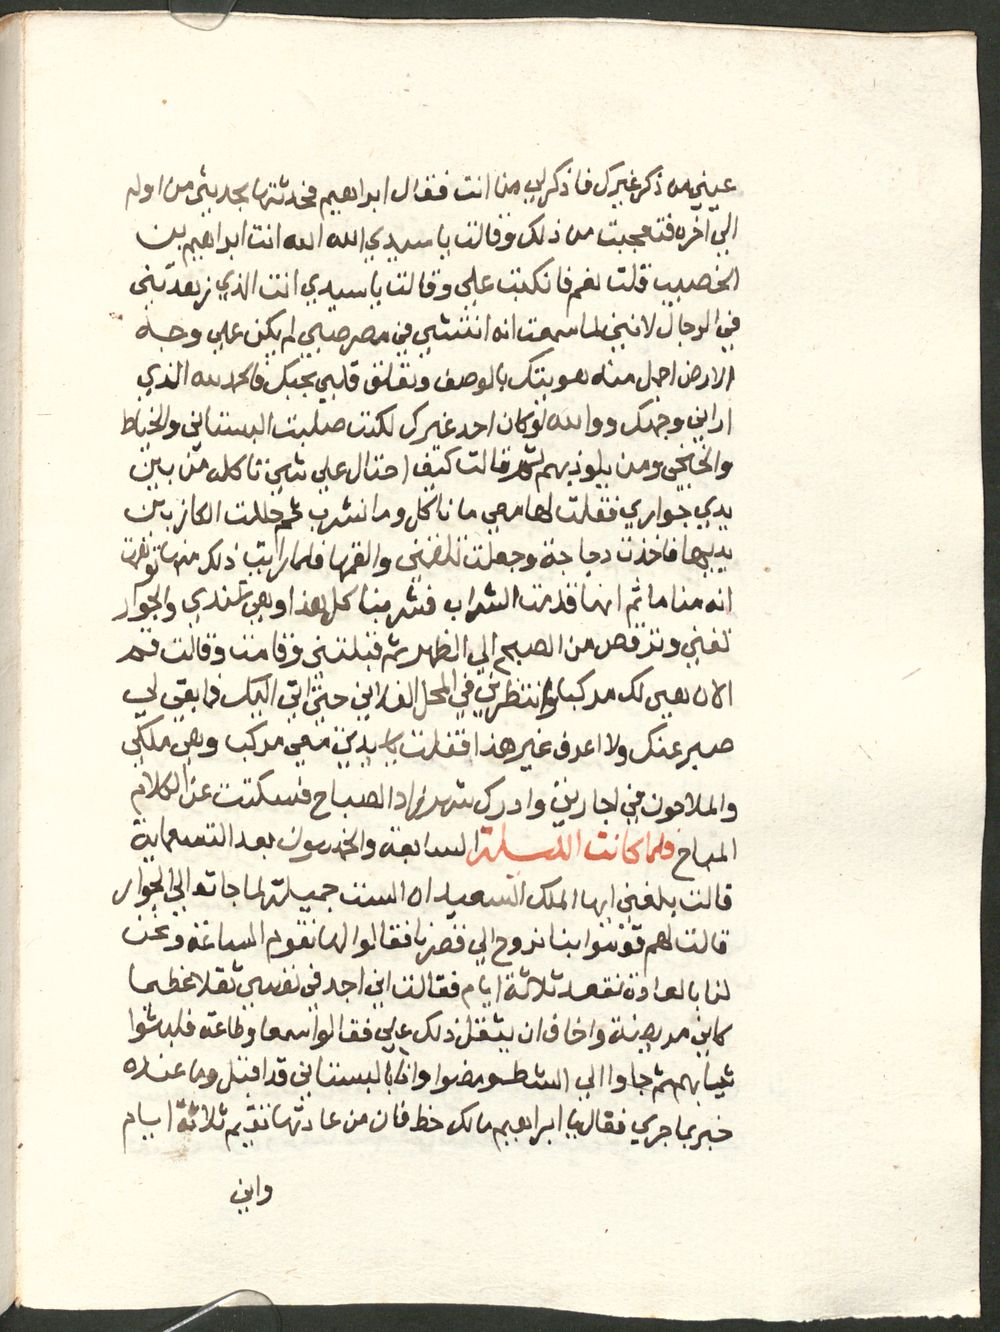 عيني من ذكر غيرك فاذكر لي من انت فقال ابراهيم فحدثتها بحديثي من اوله
الي اخره فتعجبت من ذلك وقالت يا سيدي الله الله انت ابراهيم بن
الخصيب قلت نعم فانكبت علي وقالت يا سيدي انت الذي زهدتني
في الرجال لانني لما سمعت انه انتشي في مصر صبي لم يكن علي وجه
الارض اجمل منه هويتك بالوصف وتعلق قلبي بحبك فالحمد لله الذي
اراني وجهك ووالله لو كان احد غيرك لكنت صلبت البستاني والخياط
والخانجي ومن يلوذ بهم ثم قالت كيف احتال علي شي تاكله من بين
يدي جواري فقلت لها معي ما ناكل وما نشرب ثم حللت الكاز بين
يديها فاخدت دجاجة وجعلت تلقمني والقمها فلما رايت ذلك منها توهمت
انه مناما ثم انها قدمت الشراب فشربنا كل هذا وهي عندي والجوار
تغني وترقص من الصبح الي الظهر ثم قبلتني وقامت وقالت قم
الان هيي لك مركبا وانتظرني في المحل الفلاني حتي اتي اليك فما بقي لي
صبر عنك ولا اعرف غير هذا فقلت يا ستي معي مركب وهي ملكي
والملاحون في اجارتي وادرك شهرزاد الصباح فسكتت عن الكلام
المباح فلما كانت الليلة السابعة والخمسون بعد التسعماية
قالت بلغني ايها الملك السعيد ان الست جميلة لما جات الي الجوار
قالت لهم قوموا بنا نروح الي قصرنا فقالوا لها نقوم الساعة ونحن
لنا بالعادة نقعد ثلاثة ايام فقالت اني اجد في نفسي ثقلا عظيما
كاني مريضة واخاف ان يثقل ذلك علي فقالوا سمعا وطاعة فلبسوا
ثيابهم ثم جاوا الي الشط ومضوا واذا بالبستاني قد اقبل وما عنده
خبر بما جري فقال يا ابراهيم مالك حظ فان من عادتها تقيم ثلاثة ايام
واني